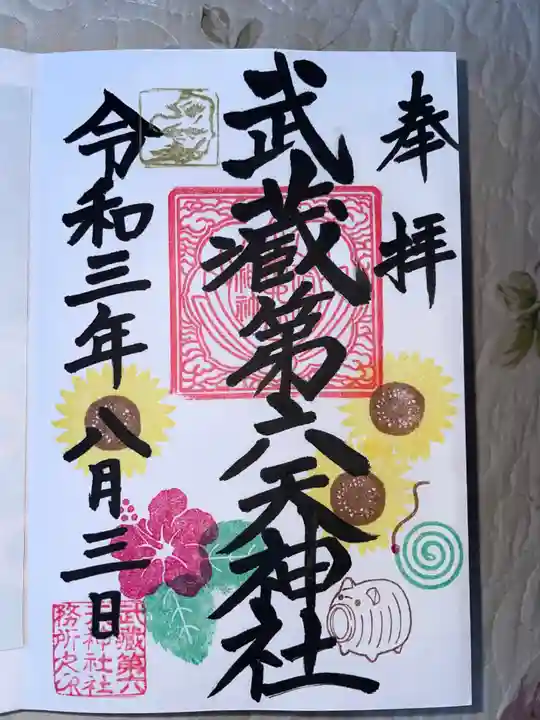 奉拝
武蔵第六天神社
令和三年八月三日
武蔵第六
天神社社
務所之印